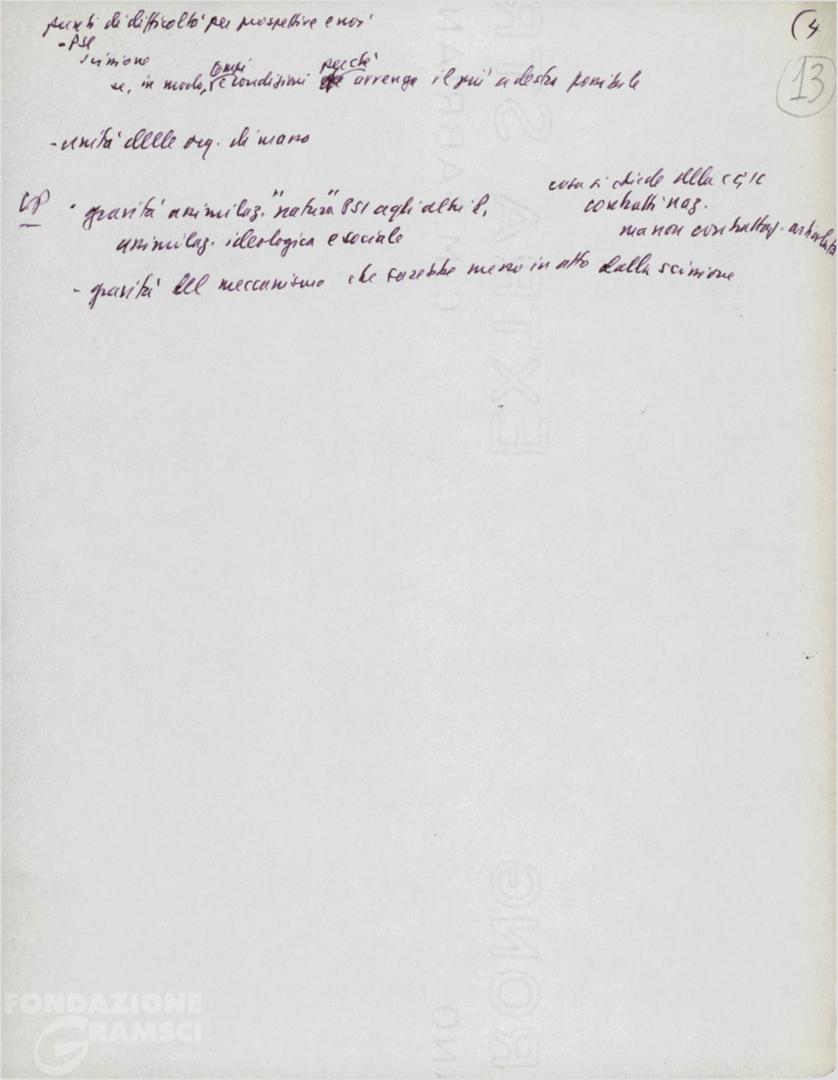 (4
13
punti di difficoltà per prospettive e noi
- PSI
scissione
tempi perché
se, in modo, e condizioni avvenga il più a destra possibile
- unità delle org. di massa
cosa si chiede alla CGIL
contratti naz.
ma non contrattaz. articolata
- gravità assimilaz. "natura" PSI agli altri
assimilaz. ideologica e sociale
- gravità del meccanismo che sarebbe messo in atto dalla scissione
EXTRA STRONG
FONDAZIONE
GRAMSCI
online